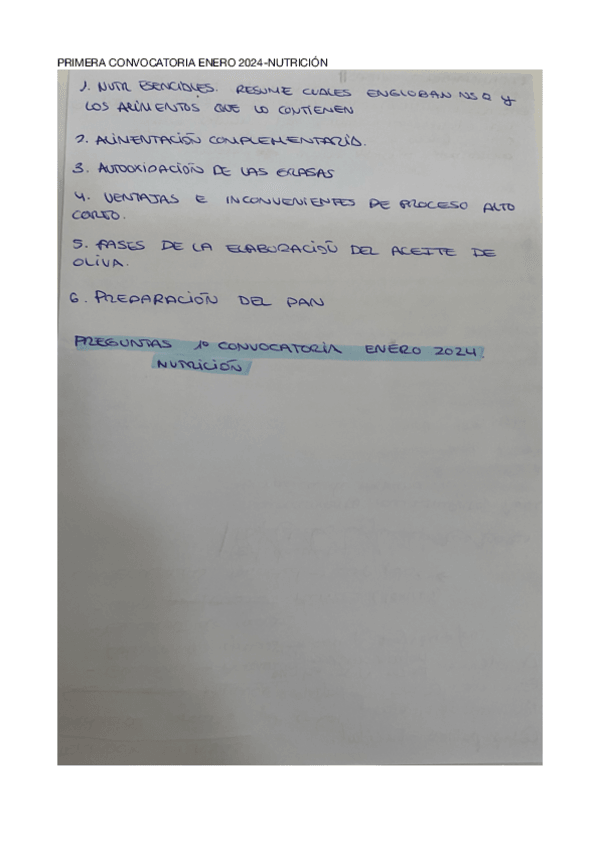 PRIMERA CONVOCATORIA ENERO 2024-NUTRICIÓN
1. NUTR ESENCIALES. RESUME CUALES ENGLOBAN Y
LOS ALIMENTOS QUE LO CONTIENEN
2. ALIMENTACIÓN COMPLEMENTARIA.
3. AUTOOXIDACIÓN DE LAS GRASAS
4. VENTAJAS E INCONVENIENTES DE PROCESO ALTO
CORTO.
5. FASES DE LA ELABORACIÓN DEL ACEITE DE
OLIVA.
6. PREPARACIÓN DEL PAN
PREGUNTAS 1º CONVOCATORIA ENERO 2024
NUTRICIÓN